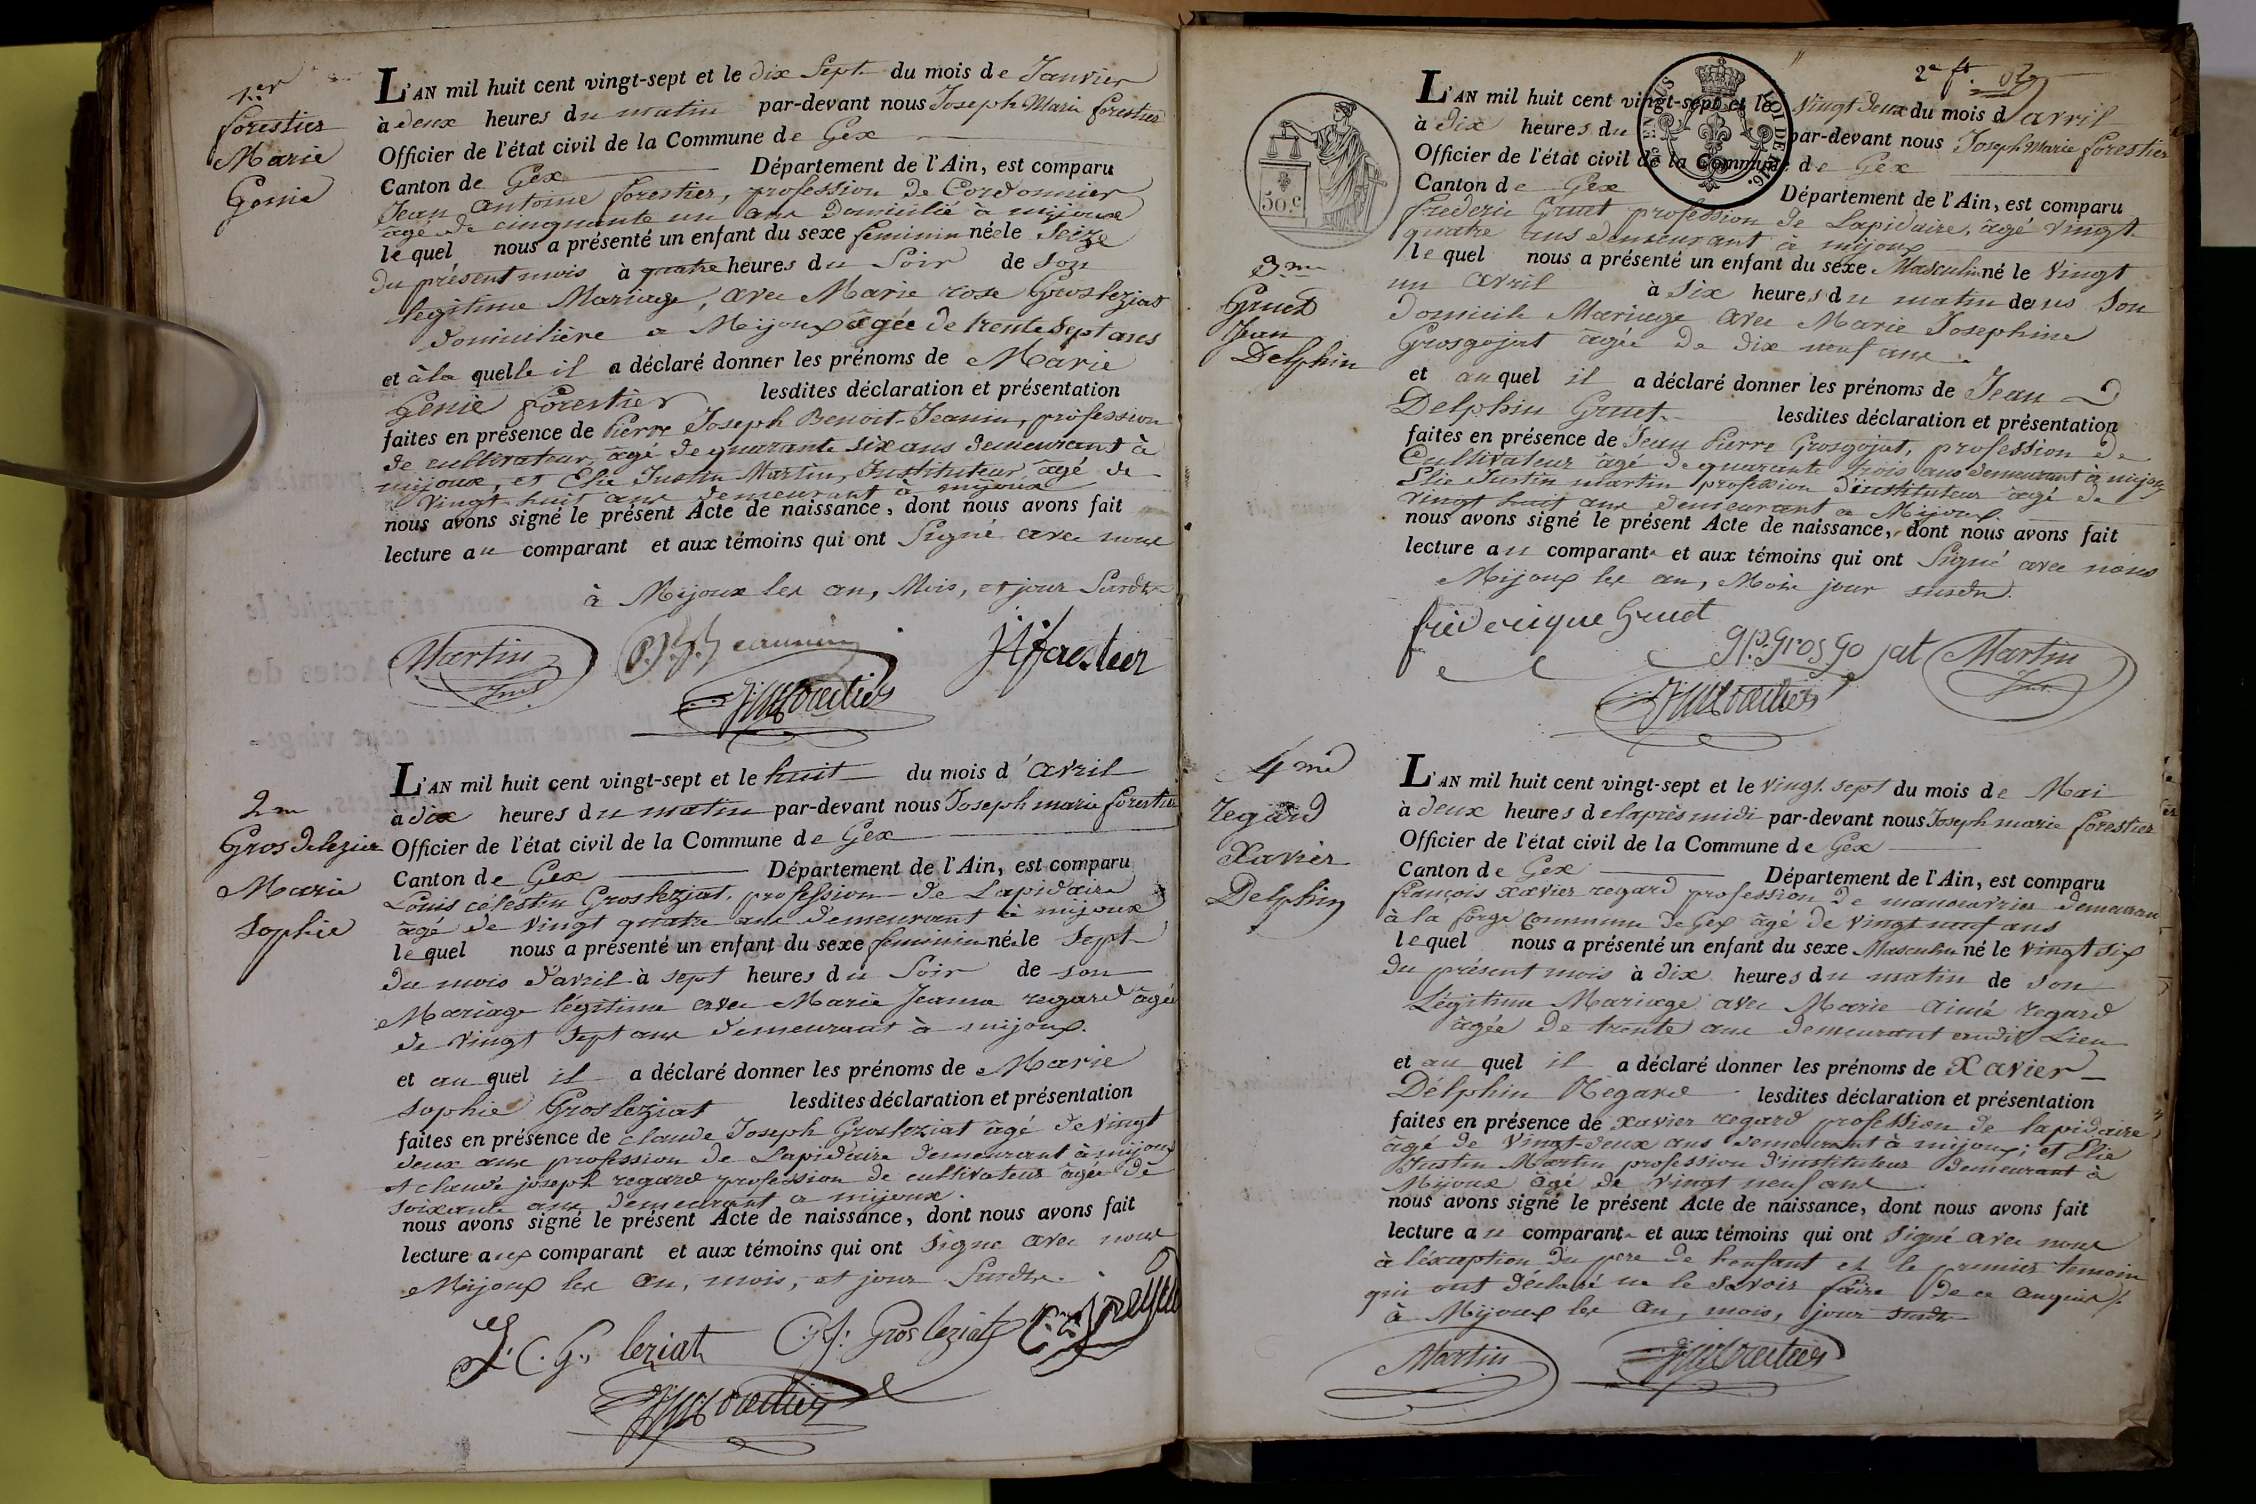 1.er
forestier
Marie
Genie
L'AN mil huit cent vingt-sept et le dix Sept du mois de Janvier
à deux heures du matin par-devant nous Joseph Marie forestier
Officier de l'état civil de la Commune de Gex
Canton de Gex Département de l'Ain, est comparu
Jean antoine forestier, profession de Cordonnier
âgé de cinquante un ans Domicilié à mijoux
le quel nous a présenté un enfant du sexe feminin née le Seize
du présent mois à quatre heures du Soir de Son
legitime Mariage, avec Marie rose Grosleziat
domicilière a Mijoux âgée de trente Sept ans
et à la quelle il a déclaré donner les prénoms de Marie
Genie forestier lesdites déclaration et présentation
faites en présence de Pierre Joseph Benoit-Jeanin, profession
de cultivateur, âgé de quarante Six ans demeurant à
mijoux, et Elie Justin Martin, Instituteur âgé de
Vingt huit ans demeurant à mijoux
nous avons signé le présent Acte de naissance, dont nous avons fait
lecture au comparant et aux témoins qui ont Signé avec nous
à Mijoux les an, Mois, et jour Susdts
Martin
2me
Gros deleziat
Marie
Sophie
L'AN mil huit cent vingt-sept et le huit du mois d'avril
à dix heures du matin par-devant nous Joseph marie forestier
Officier de l'état civil de la Commune de Gex
Canton de Gex Département de l'Ain, est comparu
Louis célestin Grosleziat, profession de Lapidaire
âgé de vingt quatre ans demeurant à mijoux
le quel nous a présenté un enfant du sexe feminin née le Sept
du mois d'avril à sept heures du Soir de son
Mariage légitime avec Marie Jeanne regard âgée
de vingt Sept ans demeurant à mijoux.
et au quel il a déclaré donner les prénoms de Marie
Sophie Grosleziat lesdites déclaration et présentation
faites en présence de claude Joseph Grosleziat âgé de vingt
deux ans profession de Lapidaire demeurant à mijoux
et claude joseph regard profession de cultivateur âgée de
soixante ans demeurant a mijoux.
nous avons signé le présent Acte de naissance, dont nous avons fait
lecture aux comparant et aux témoins qui ont Signe avec nous
Mijoux les an, mois, et jour Susdts.
L. C. G. leziat C. J. Grosleziat
2e ft.
50 c
L'AN mil huit cent vingt-sept et le Vingt deux du mois d'avril
à dix heures du par-devant nous Joseph Marie forestier
Officier de l'état civil de la Commune de Gex
Canton de Gex Département de l'Ain, est comparu
frederic Gruet profession de Lapidaire, âgé vingt
quatre ans demeurant à mijoux
le quel nous a présenté un enfant du sexe Masculin né le Vingt
un avril à Six heures du matin de Son
domicile Mariage avec Marie Josephine
Grosgojat âgée de dix neuf ans.
3me
Gruet
Jean
Delphin
et au quel il a déclaré donner les prénoms de Jean
Delphin Gruet. lesdites déclaration et présentation
faites en présence de Jean Pierre Grosgojat, profession de
Cultivateur âgé de quarante trois ans demeurant à mijoux
Elie Justin martin profession d'instituteur âgé de
vingt huit ans demeurant a Mijoux.
nous avons signé le présent Acte de naissance, dont nous avons fait
lecture au comparant et aux témoins qui ont Signé avec nous
Mijoux les an, Mois jour susdts.
frederique Gruet
J P. gros Go jat Martin
4me
regard
Xavier
Delphin
L'AN mil huit cent vingt-sept et le vingt sept du mois de Mai
à deux heures de laprès midi par-devant nous Joseph marie forestier
Officier de l'état civil de la Commune de Gex
Canton de Gex Département de l'Ain, est comparu
françois xavier regard profession de manoeuvrier demeurant
à la forge commune de Gex âgé de vingt neuf ans
le quel nous a présenté un enfant du sexe Masculin né le vingt six
du présent mois à dix heures du matin de son
Légitime Mariage avec Marie aimé regard
âgée de trente ans demeurant audit Lieu
et au quel il a déclaré donner les prénoms de Xavier
Délphin Regard lesdites déclaration et présentation
faites en présence de xavier regard profession de lapidaire
âgé de Vingt deux ans demeurant à mijoux; et Elie
Justin Martin profession d'instituteur demeurant à
Mijoux âgé de vingt neuf ans
nous avons signé le présent Acte de naissance, dont nous avons fait
lecture au comparant et aux témoins qui ont Signé avec nous
à léxception du pere de lenfant et le premier temoin
qui ont déclaré ne le savoir faire de ce enquis
à Mijoux les an, mois, jour susdts
Martin